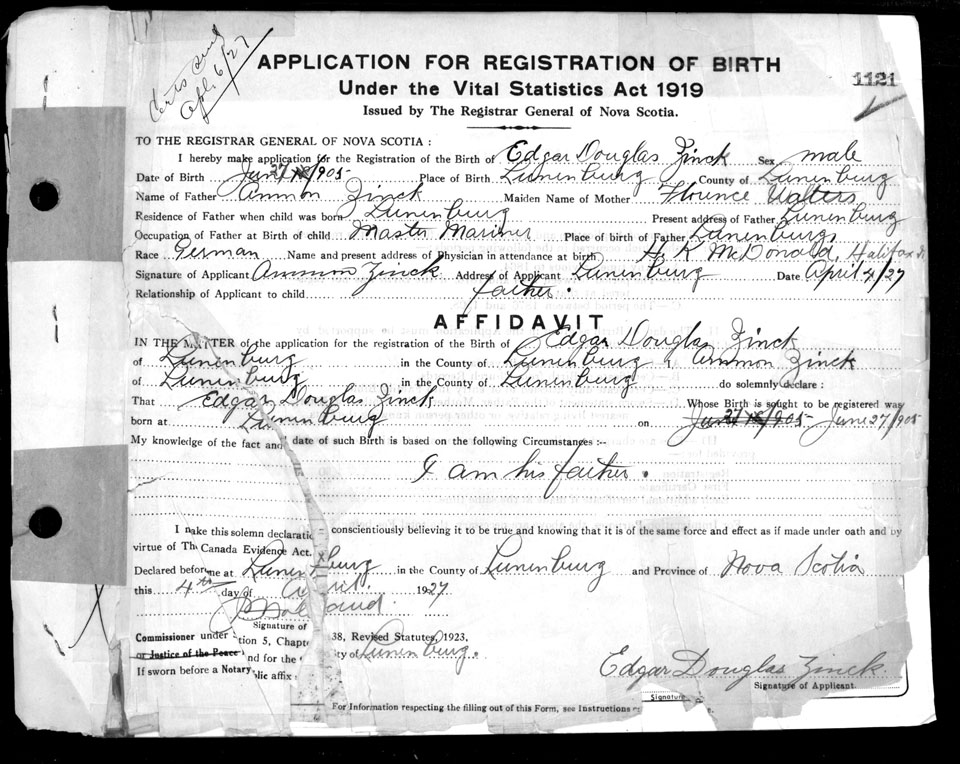 Apl 6/27
APPLICATION FOR REGISTRATION OF BIRTH
Under the Vital Statistics Act 1919
1121
Issued by The Registrar General of Nova Scotia.
TO THE REGISTRAR GENERAL OF NOVA SCOTIA :
I hereby make application for the Registration of the Birth of Edgar Douglas Zinck Sex male
Date of Birth June 27 1905 Place of Birth Lunenburg County of Lunenburg
Name of Father Ammon Zinck Maiden Name of Mother Florence Walters
Residence of Father when child was born Lunenburg Present address of Father Lunenburg
Occupation of Father at Birth of child Master Mariner Place of birth of Father Lunenburg
Race German Name and present address of Physician in attendance at birth H. K McDonald, Halifax
Signature of Applicant Ammon Zinck Address of Applicant Lunenburg Date April 4/27
Relationship of Applicant to child father.
AFFIDAVIT
IN THE MATTER of the application for the registration of the Birth of Edgar Douglas Zinck
of Lunenburg in the County of Lunenburg I, Ammon Zinck
of Lunenburg in the County of Lunenburg do solemnly declare :
That Edgar Douglas Zinck Whose Birth is sought to be registered was
born at Lunenburg on June 27/905
My knowledge of the fact and date of such Birth is based on the following Circumstances :-
I am his father.
I make this solemn declaratic conscientiously believing it to be true and knowing that it is of the same force and effect as if made under oath and by
virtue of The Canada Evidence Act.
Declared before me at Lunenburg in the County of Lunenburg and Province of Nova Scotia
this 4th day of April 1927
Signature of
Commissioner under tion 5, Chapt 38, Revised Statutes, 1923,
or Justice of the Peace nd for the ity of Lunenburg.
If sworn before a Notary lic affix
Edgar Douglas Zinck
Signature of Applicant.
Signature
For Information respecting the filling out of this Form, see Instructions